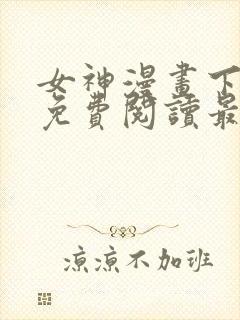 女神漫畫下
免費閱讀最
涼涼不加班